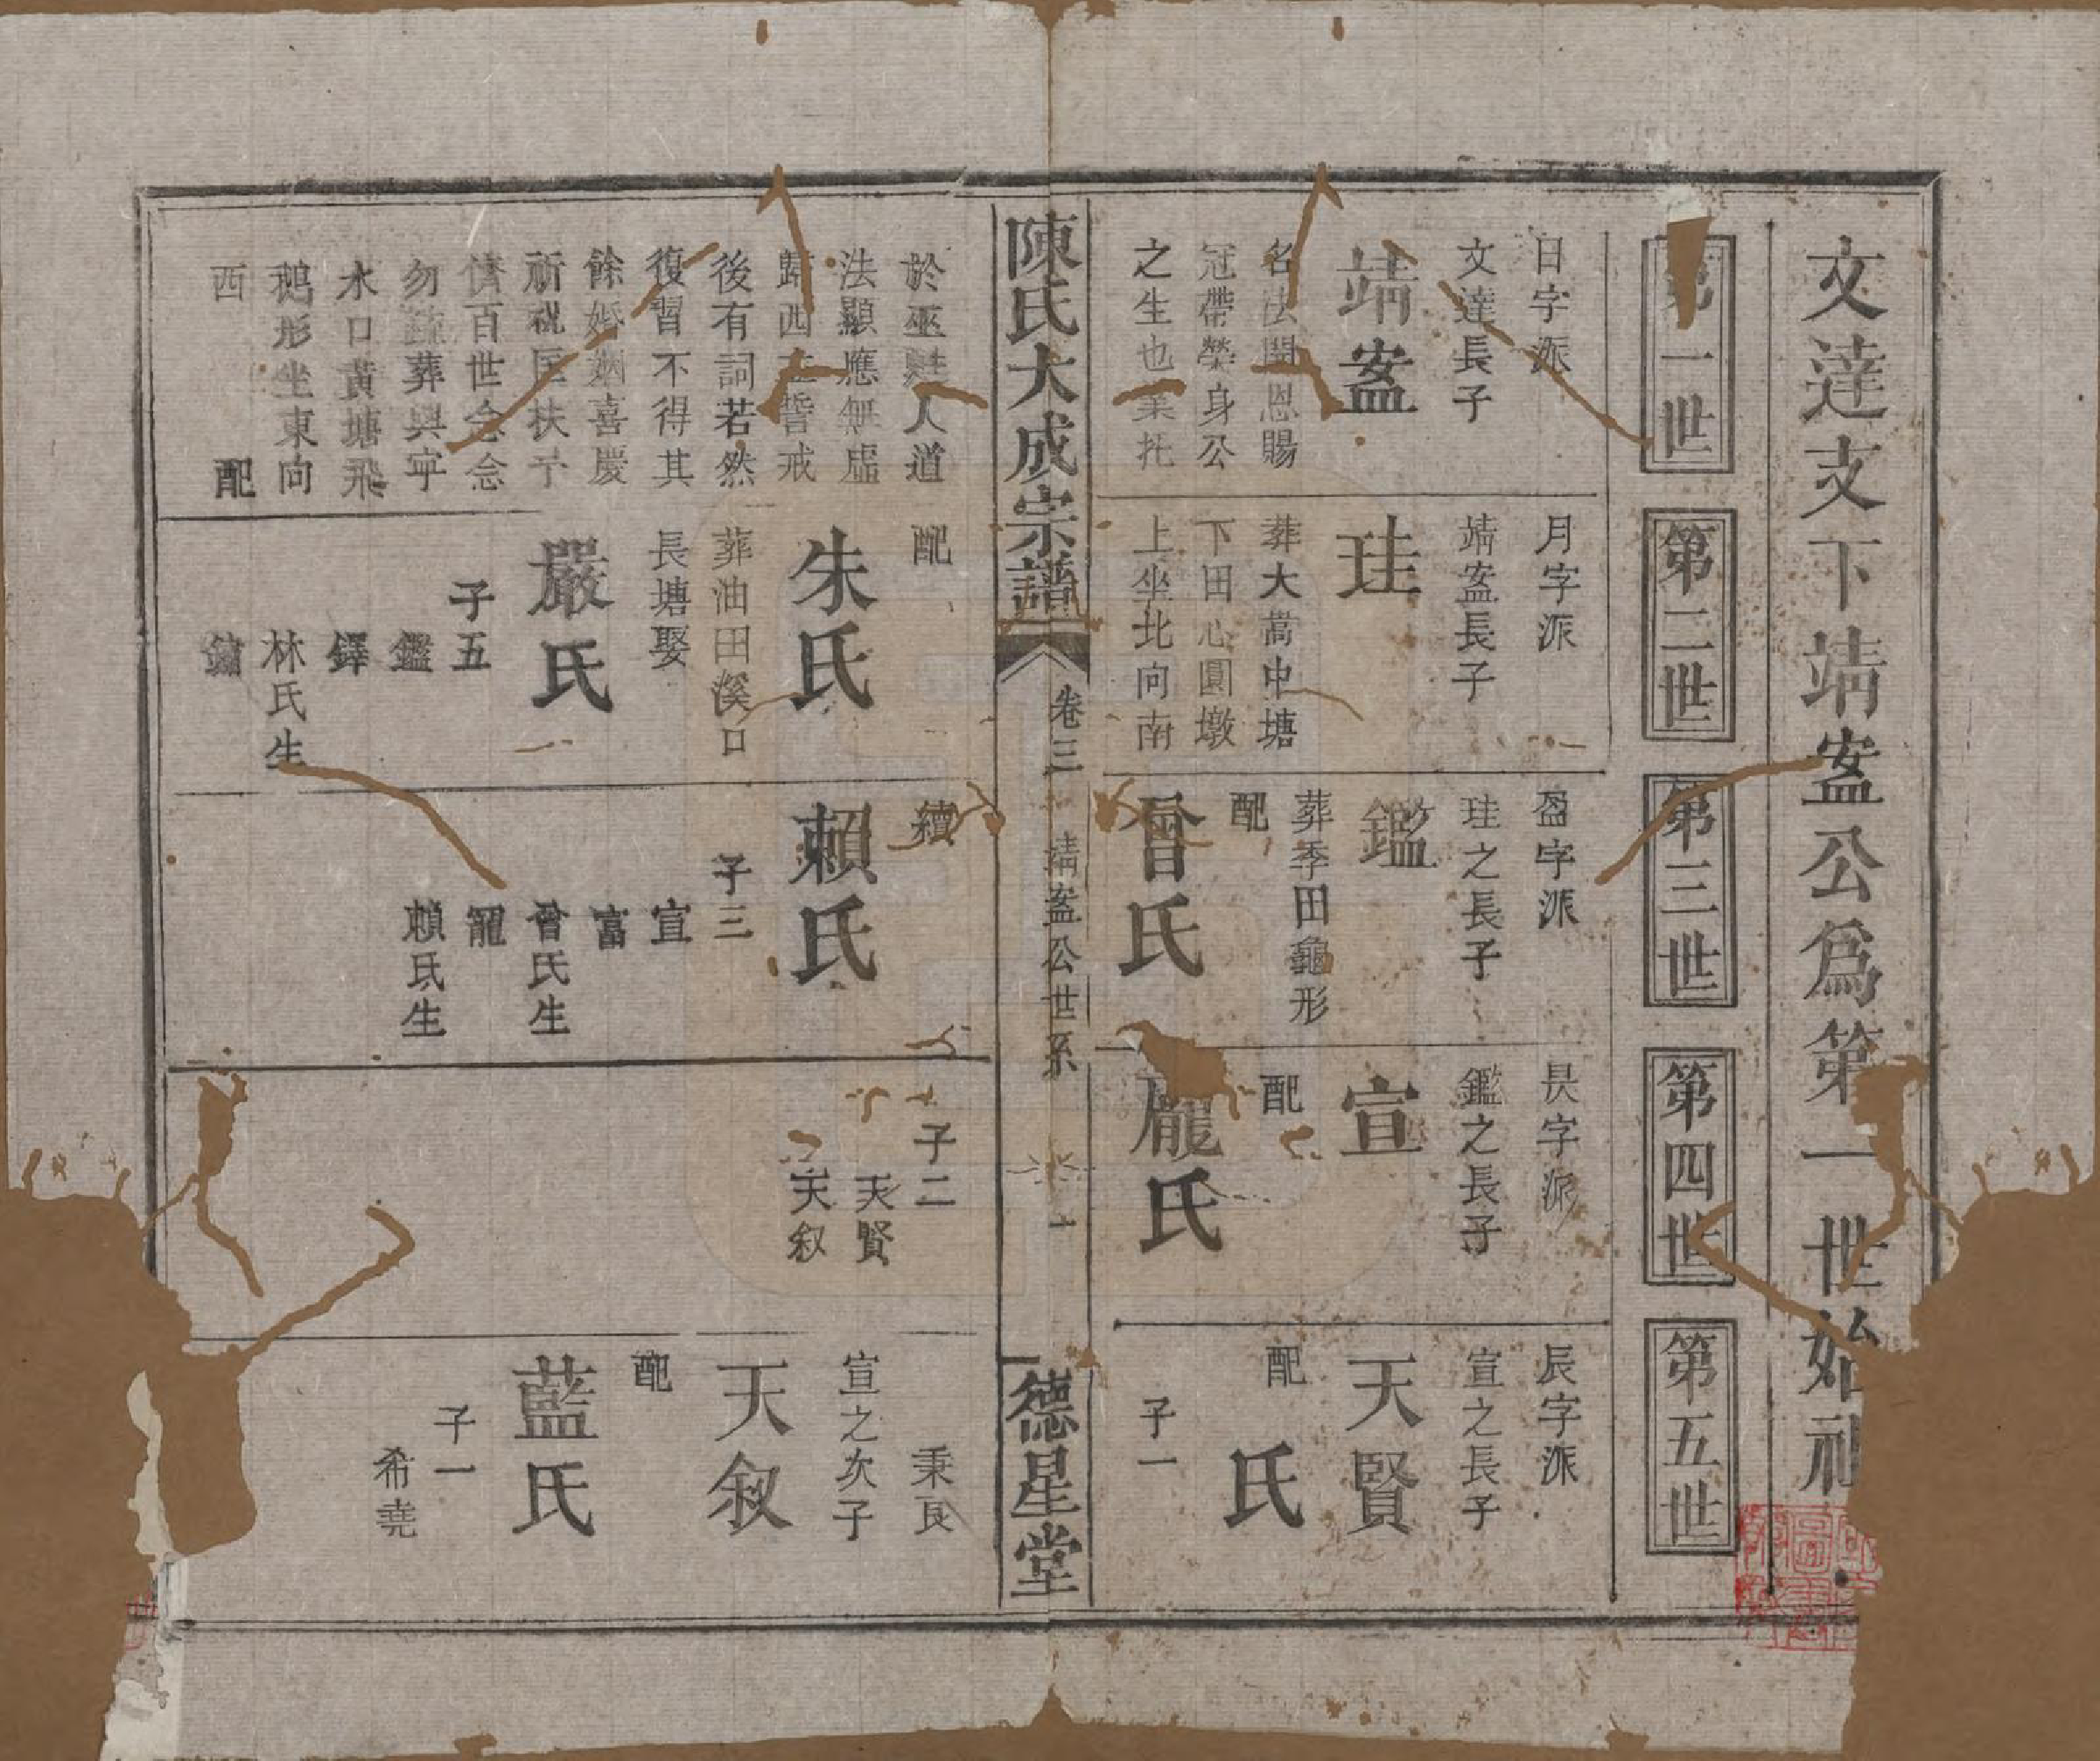 文達支下靖盇公爲第一世始祖
第一世
第二世
第三世
第四世
第五世
日字派
文達長子
靖盇
名法聞恩賜
冠帶榮身公
之生也業托
月字派
靖盇長子
珪
葬大蒿中塘
下田心圓墩
上坐北向南
盈字派
珪之長子
鑑
葬季田龜形
配
曾氏
昃字派
鑑之長子
宣
配
龎氏
辰字派
宣之長子
天賢
配
氏
子一
陳氏大成宗譜
卷三
靖盇公世系
一
德星堂
於巫 人道
法顯應無虛
歸西 誓戒
後有詞若然
復習不得其
餘婚姻喜慶
祈祝匡扶子
儕百世念念
勿 葬興寧
水口黃塘飛
鵝形坐東向
西
配
配
朱氏
葬油田溪口
長塘娶
嚴氏
子五
鑑
鐸
林氏生
鏞
續
賴氏
子三
宣
富
曾氏生
寵
賴氏生
子二
天賢
天叙
秉艮
宣之次子
天叙
配
藍氏
子一
希堯